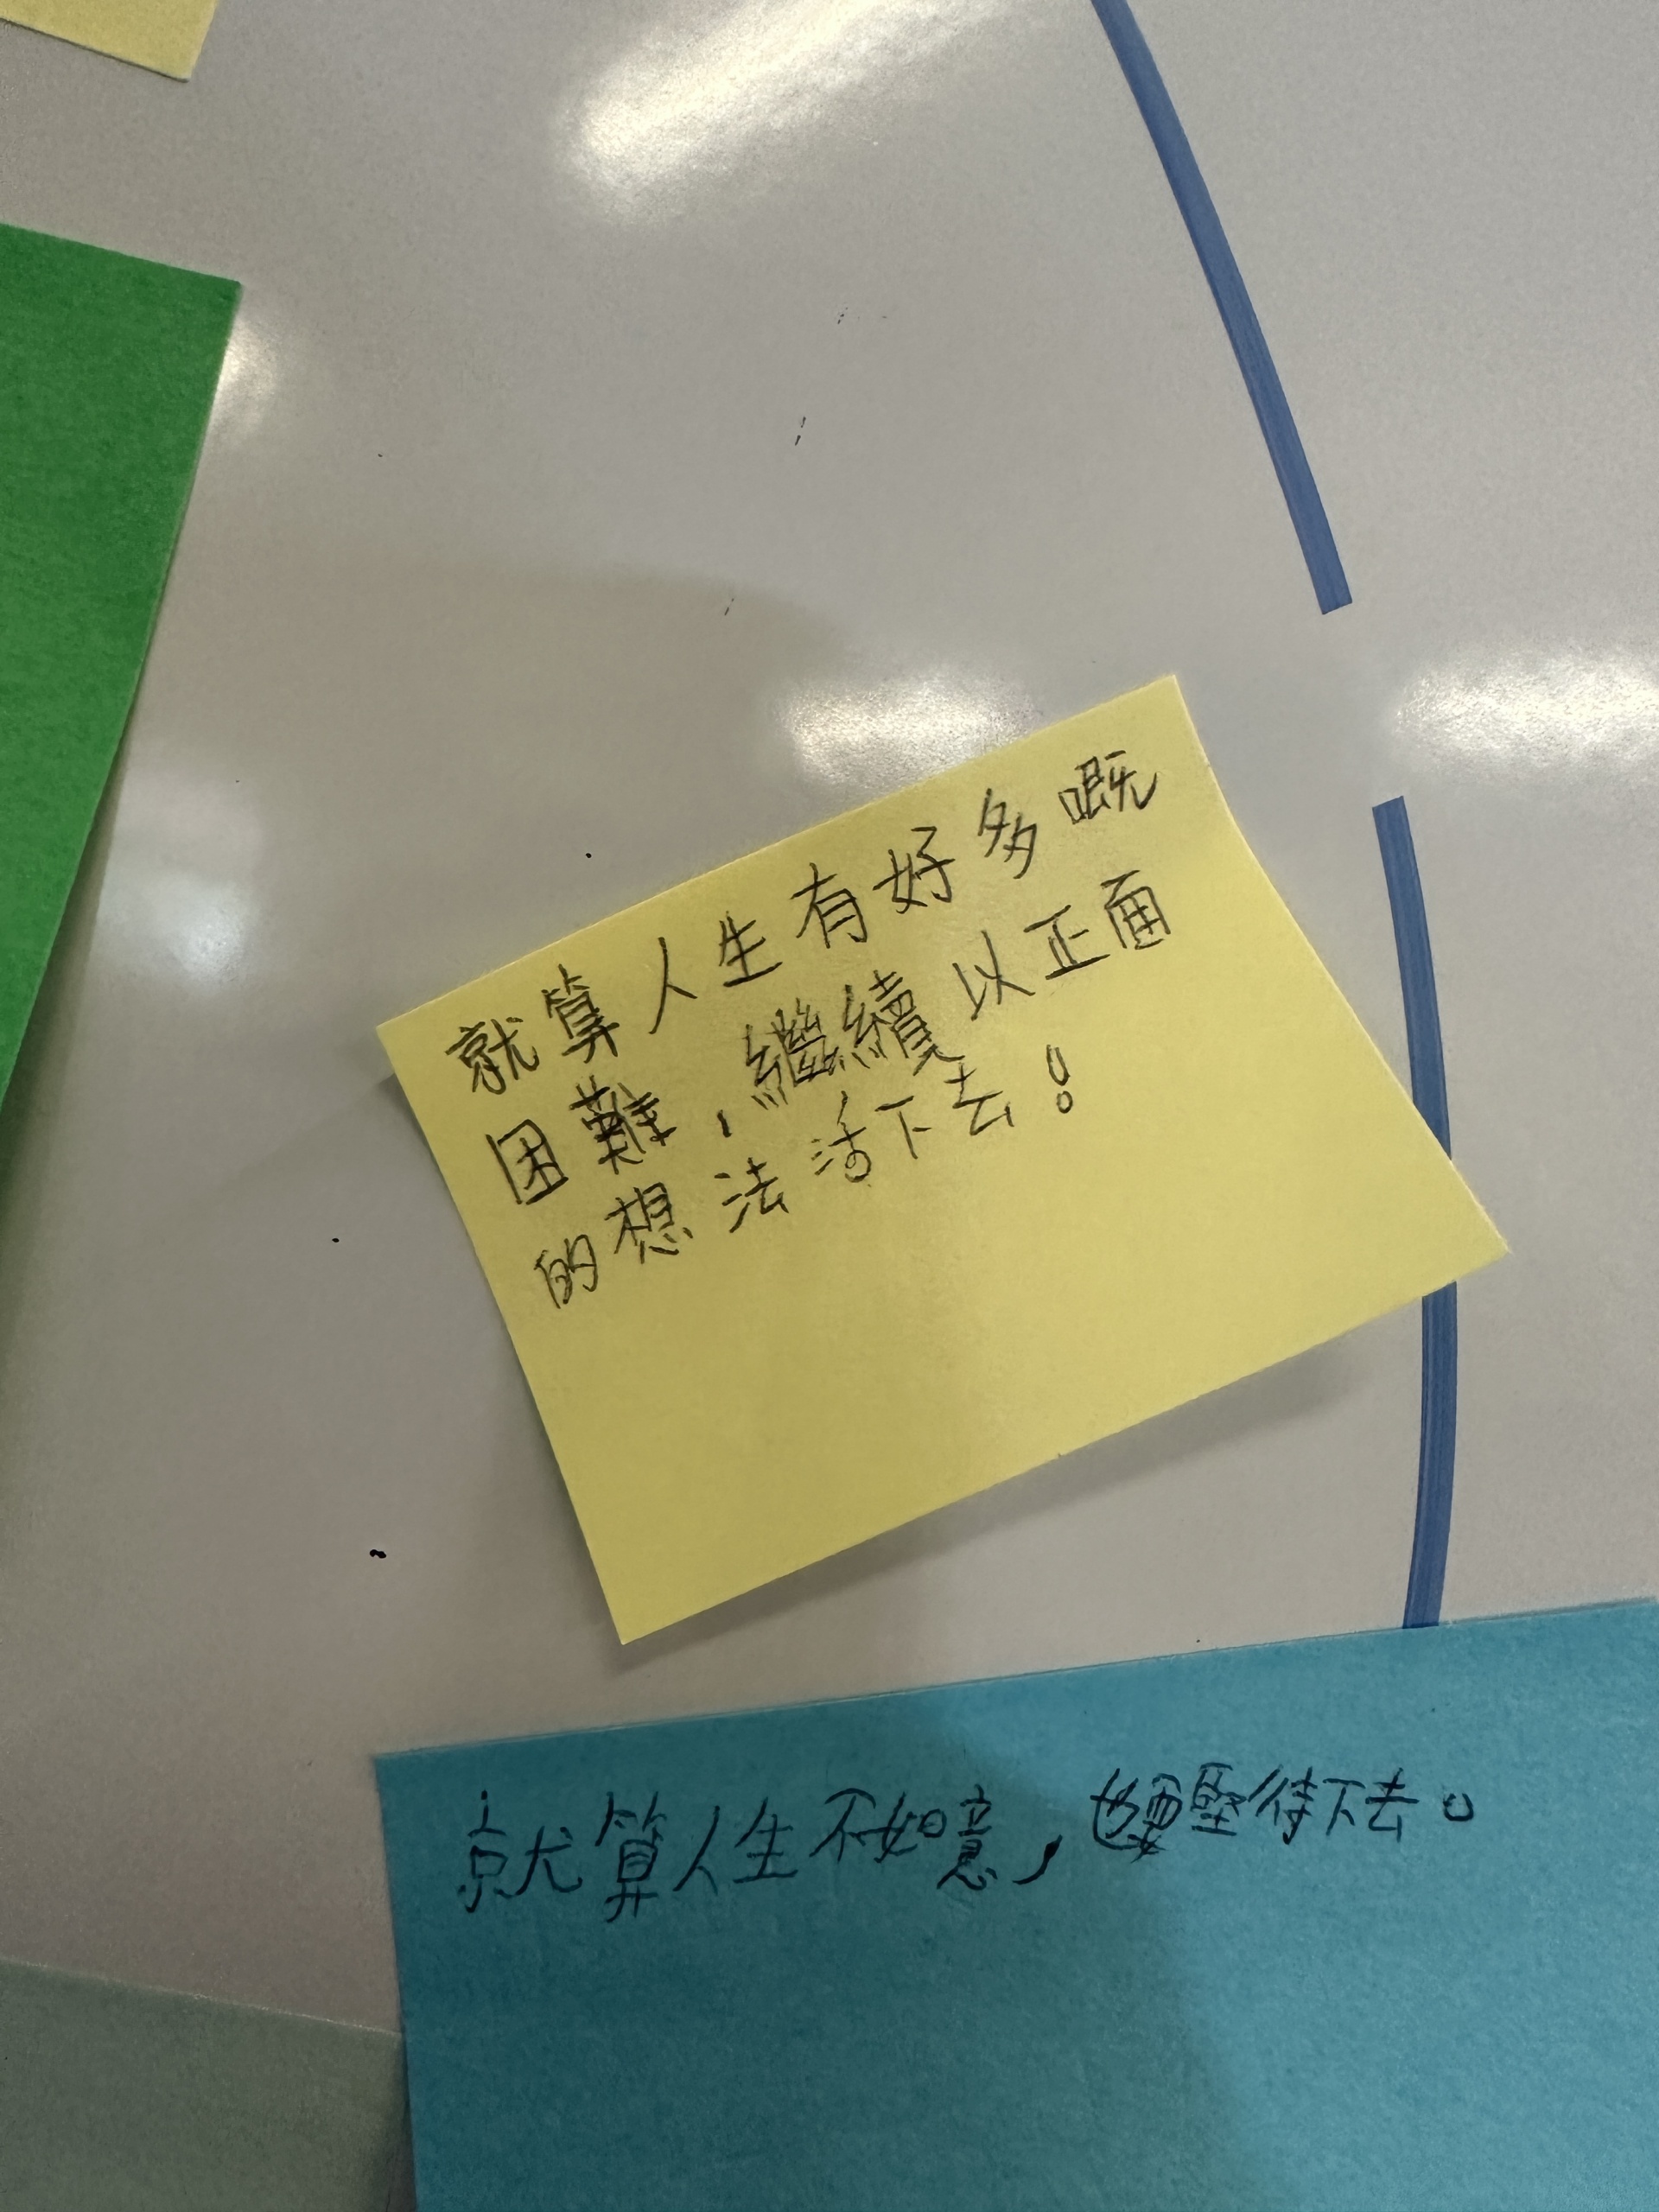 就算人生有好多嘅
困難，繼續以正面
的想法活下去！
就算人生不如意，也要堅待下去。